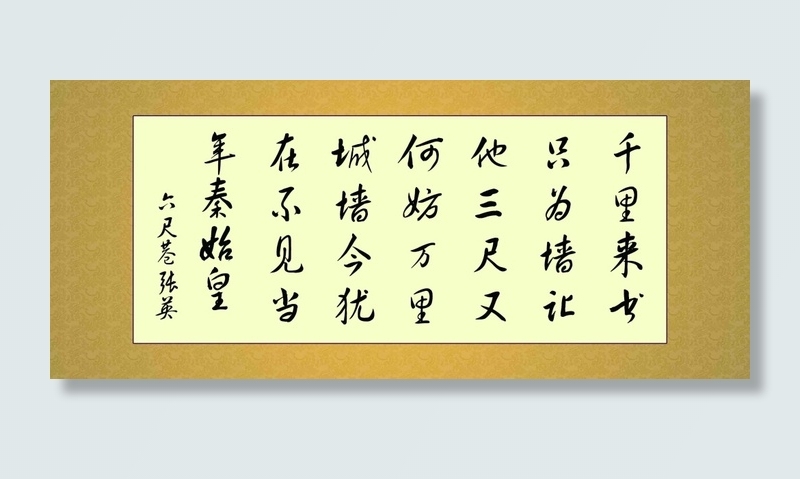 千里来书
只为墙让
他三尺又
何妨万里
城墙今犹
在不见当
年秦始皇
六尺巷张英